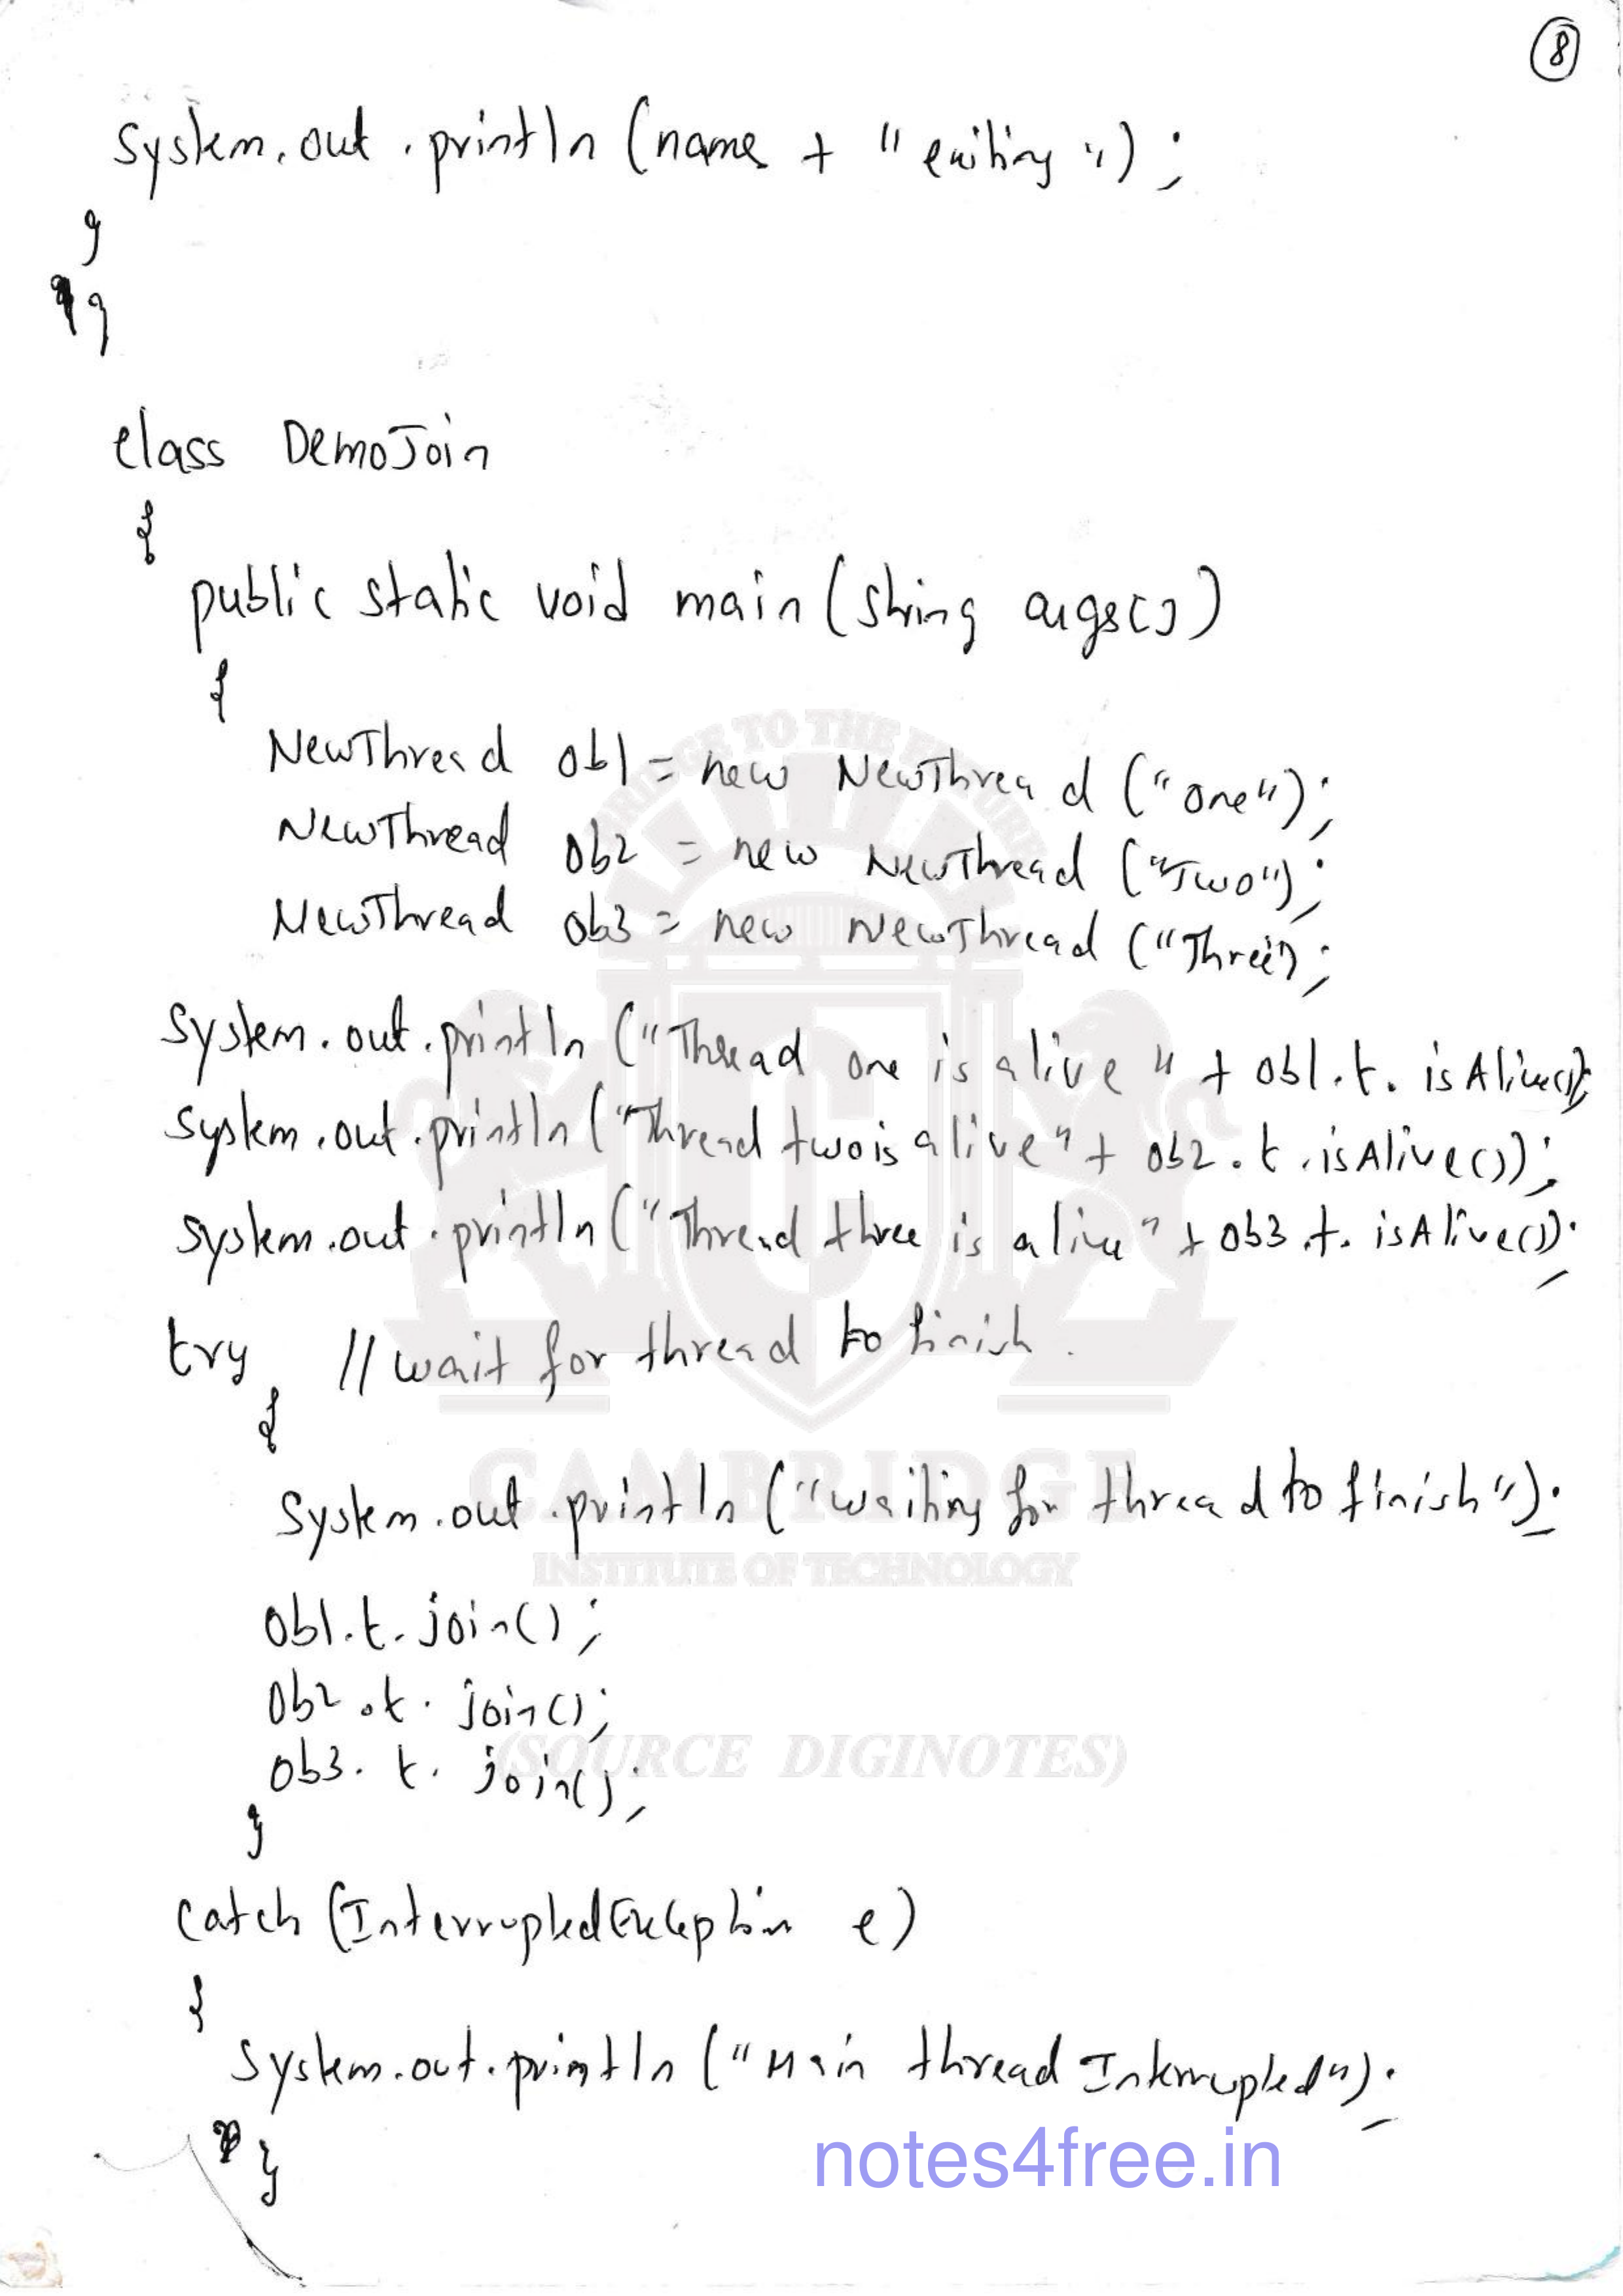 8
System.out.println (name + " exiting ");
}
}
class DemoJoin
{
public static void main (String args[])
{
NewThread ob1 = new NewThread ("one");
NewThread ob2 = new NewThread ("Two");
NewThread ob3 = new NewThread ("Three");
System.out.println ("Thread one is alive " + ob1.t.isAlive());
System.out.println ("Thread two is alive" + ob2.t.isAlive());
System.out.println ("Thread three is alive" + ob3.t.isAlive());
try // wait for thread to finish.
{
System.out.println ("waiting for thread to finish");
ob1.t.join();
ob2.t.join();
ob3.t.join();
}
catch (InterruptedException e)
{
System.out.println ("Main thread Interrupted");
}
BRIDGE TO THE FUTURE
CAMBRIDGE
INSTITUTE OF TECHNOLOGY
(SOURCE DIGINOTES)
notes4free.in